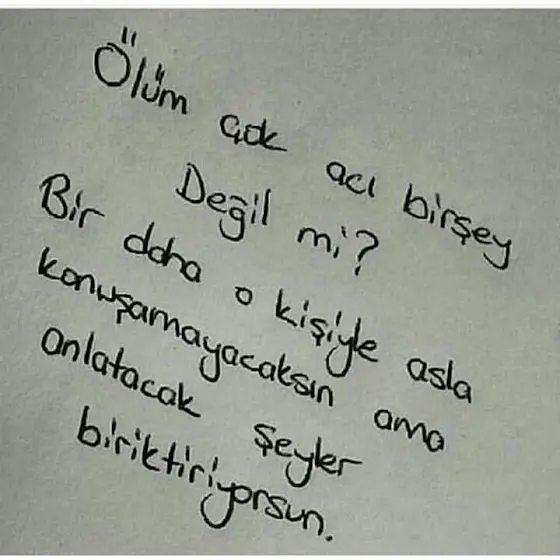 Ölüm çok acı birşey
Değil mi?
Bir daha o kişiyle asla
konuşamayacaksın ama
anlatacak şeyler
biriktiriyorsun.